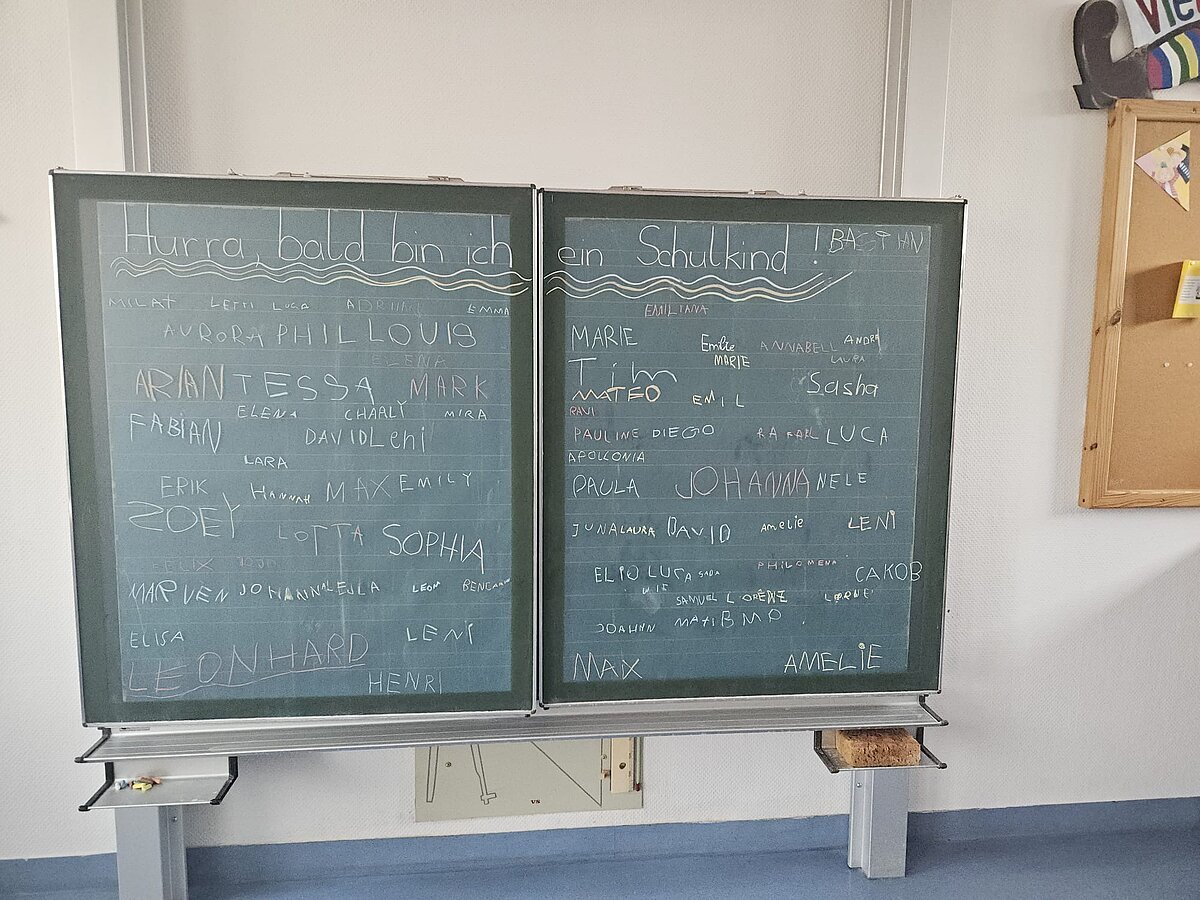 Hurra, bald bin ich ein Schulkind !
BASTIAN
MILAT LETTI LUCA EMMA
AURORA PHIL LOUIS
ELENA
ARIAN TESSA MARK
ELENA CHARLY MIRA
FABIAN DAVID Leni
LARA
ERIK HANNAH MAX EMILY
ZOEY LOTTA SOPHIA
FELIX
MARVEN JOHANNA LEJLA LEON
ELISA LENI
LEONHARD
HENRI
EMILIANA
MARIE Emilie ANNABELL ANDRA
MARIE LAURA
Tim Sasha
MATEO EMIL
RAVI
PAULINE DIEGO RAFAEL LUCA
APOLLONIA
PAULA JOHANNA NELE
JUNA LAURA DAVID Amelie LENI
ELIO LUCA PHILOMENA CAKOB
SAMUEL
MAX AMELIE
VIE